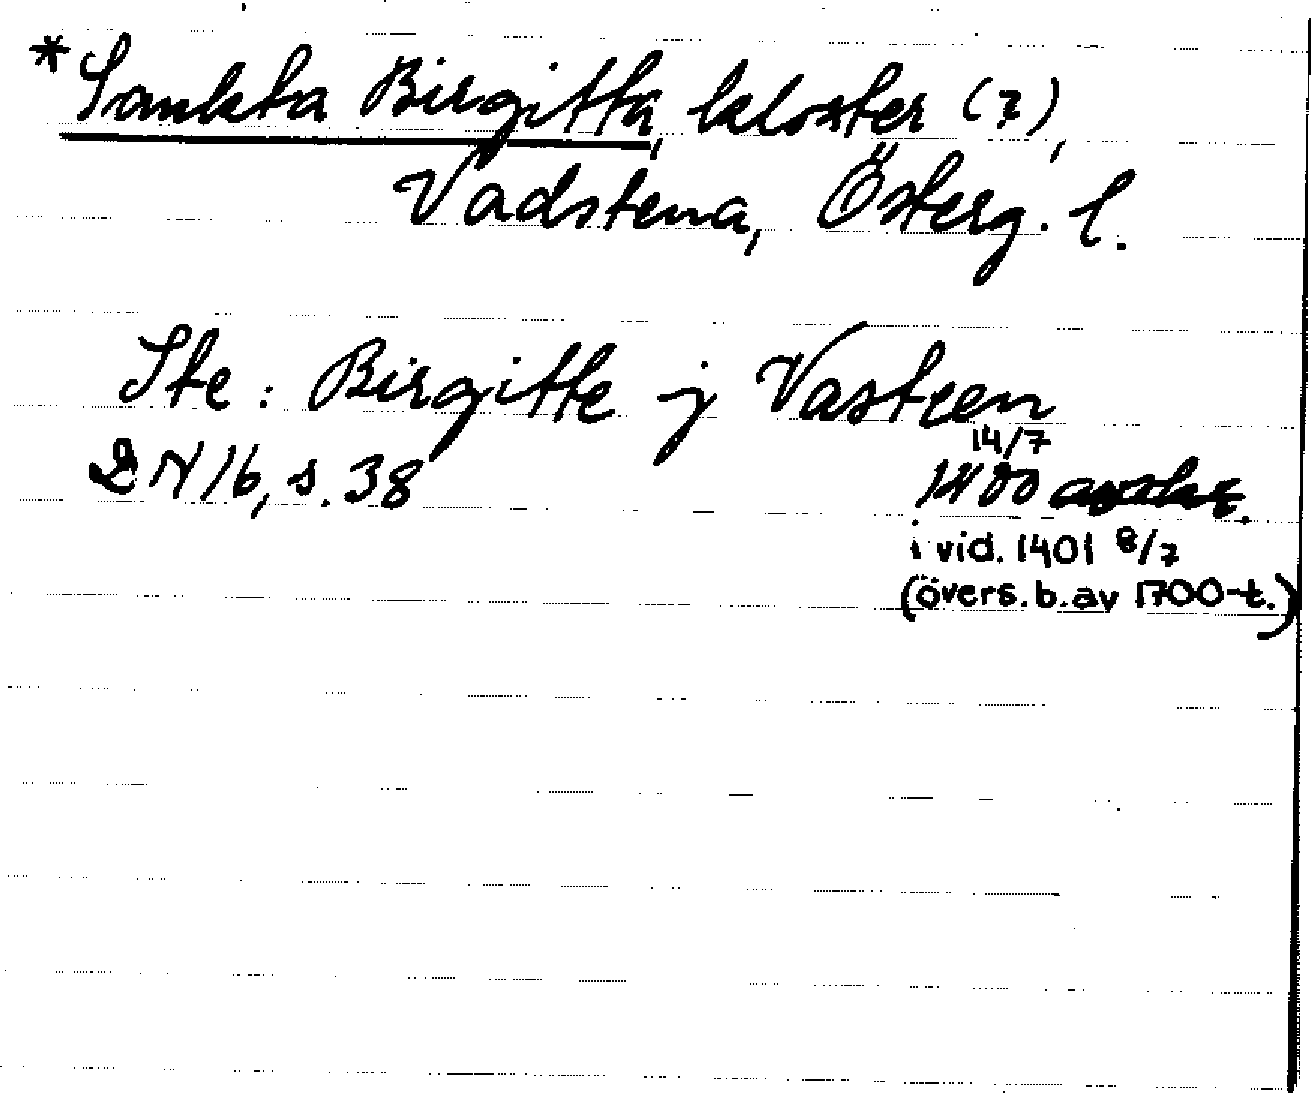 *Sankta Birgitta, kloster (?),
Vadstena, Österg. l.
Ste: Birgitte j Vastzen
DN 16, s. 38
14/7
1400
i vid. 1401 8/7
(övers. b. av 1700-t.)